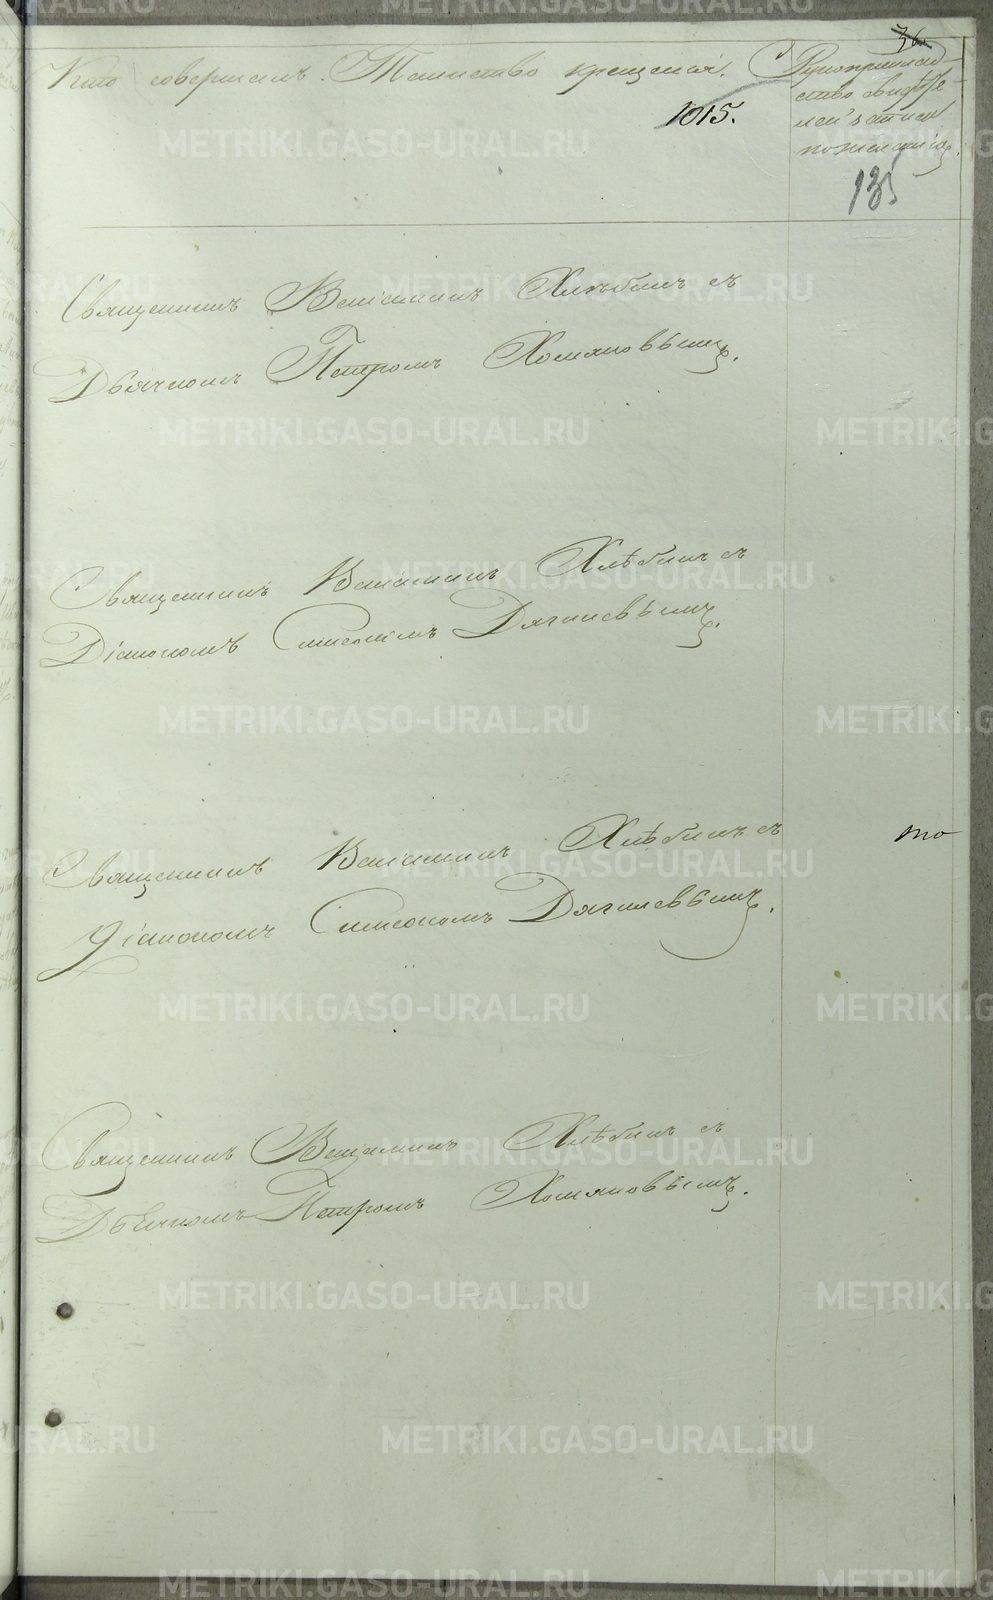 36
Кто совершалъ Таинство крещенія.
Рукоприклад-
ство свидѣте-
лей записи
по желанію.
1015.
135
Священникъ Веніаминъ Хлѣбинъ съ
Дьячкомъ Петромъ Хомяковымъ.
Священникъ Веніаминъ Хлѣбинъ съ
Діакономъ Симеономъ Дягилевымъ.
Священникъ Веніаминъ Хлѣбинъ съ
Діакономъ Симеономъ Дягилевымъ.
то
Священникъ Веніаминъ Хлѣбинъ съ
Дьячкомъ Петромъ Хомяковымъ.
METRIKI.GASO-URAL.RU